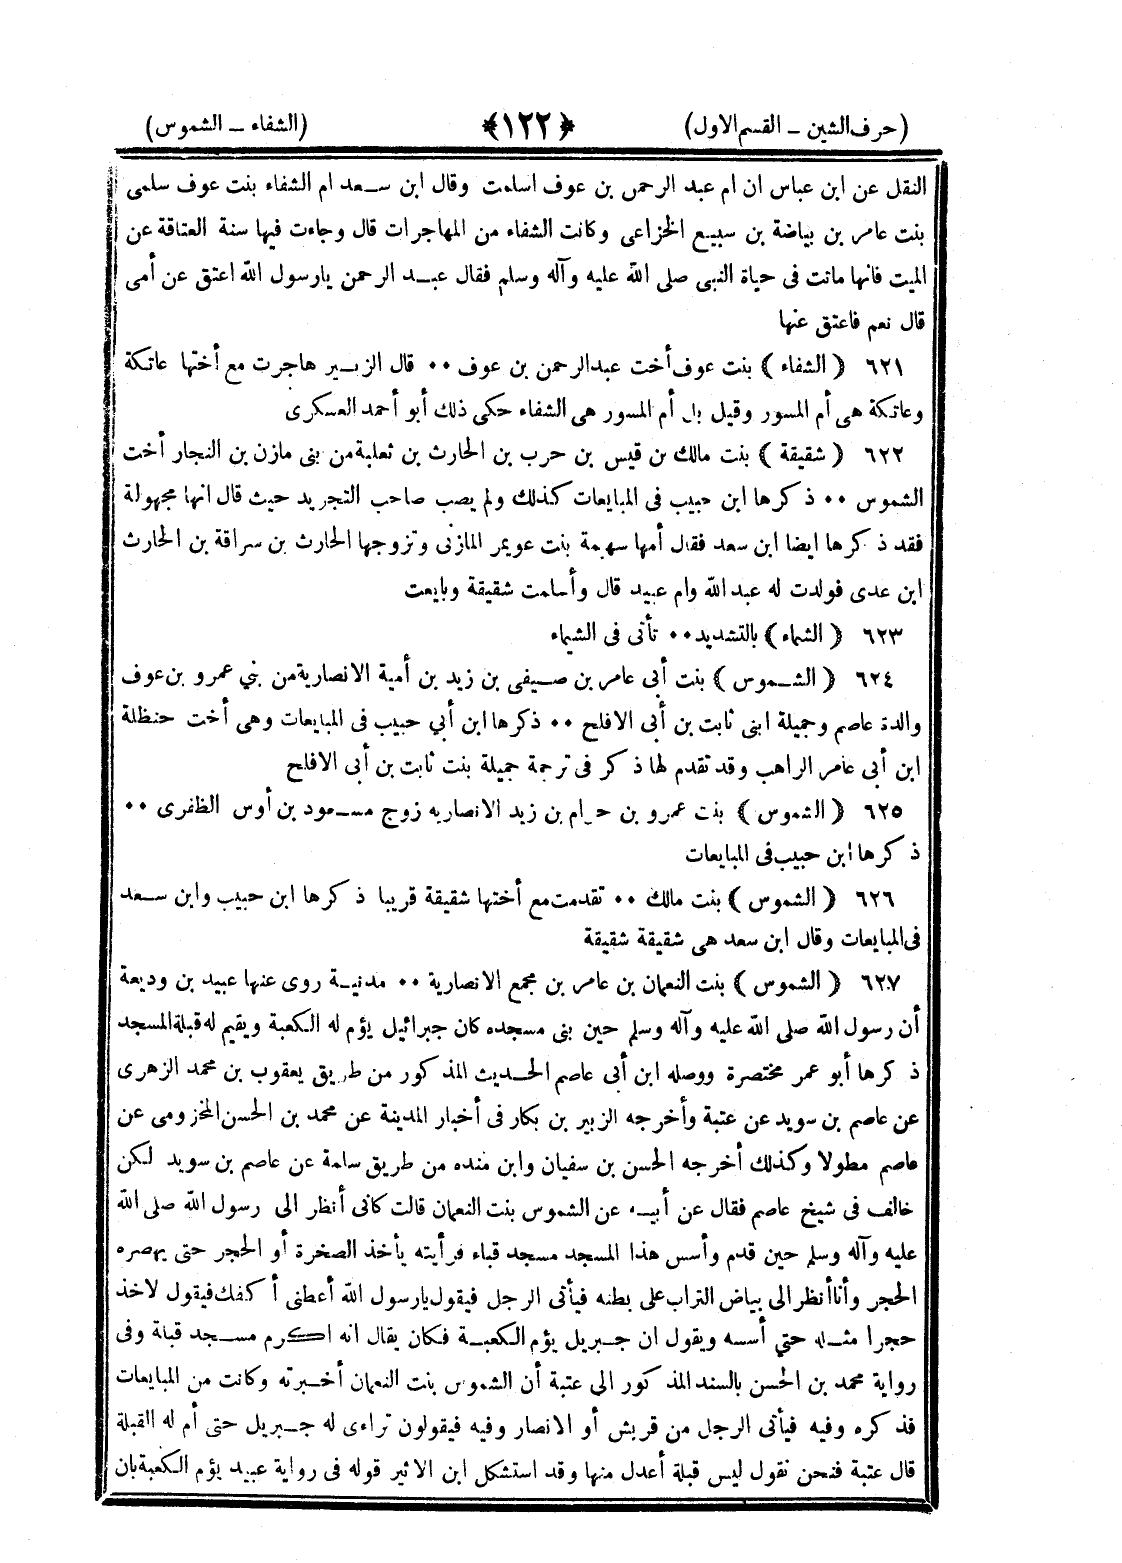 (حرف الشين – القسم الاول) ﴿١٢٢﴾ (الشفاء – الشموس)
النقل عن ابن عباس ان ام عبد الرحمن بن عوف اسلمت وقال ابن سعد ام الشفاء بنت عوف سلمى
بنت عامر بن بياضة بن سبيع الخزاعى وكانت الشفاء من المهاجرات قال وجاءت فيها سنة العتاقة عن
الميت فانها ماتت فى حياة النبى صلى الله عليه وآله وسلم فقال عبد الرحمن يارسول الله اعتق عن أمى
قال نعم فاعتق عنها
٦٢١ ﴿ الشفاء ﴾ بنت عوف أخت عبدالرحمن بن عوف ٠٠ قال الزبير هاجرت مع أختها عاتكة
وعاتكة هى أم المسور وقيل بل أم المسور هى الشفاء حكى ذلك أبو أحمد العسكرى
٦٢٢ ﴿ شقيقة ﴾ بنت مالك بن قيس بن حرب بن الحارث بن ثعلبة من بنى مازن بن النجار أخت
الشموس ٠٠ ذكرها ابن حبيب فى المبايعات كذلك ولم يصب صاحب التجريد حيث قال انها مجهولة
فقد ذكرها ايضا ابن سعد فقال أمها سهيمة بنت عويمر المازنى وتزوجها الحارث بن سراقة بن الحارث
ابن عدى فولدت له عبد الله وام عبيد قال وأسلمت شقيقة وبايعت
٦٢٣ ﴿ الشماء ﴾ بالتشديد ٠٠ تأتى فى الشيماء
٦٢٤ ﴿ الشموس ﴾ بنت أبى عامر بن صيفى بن زيد بن أمية الانصارية من بني عمرو بن عوف
والدة عاصم وجميلة ابنى ثابت بن أبى الافلح ٠٠ ذكرها ابن أبي حبيب فى المبايعات وهى أخت حنظلة
ابن أبي عامر الراهب وقد تقدم لها ذكر فى ترجمة جميلة بنت ثابت بن أبى الافلح
٦٢٥ ﴿ الشموس ﴾ بنت عمرو بن حرام بن زيد الانصاريه زوج مسعود بن أوس الظفرى ٠٠
ذكرها ابن حبيب فى المبايعات
٦٢٦ ﴿ الشموس ﴾ بنت مالك ٠٠ تقدمت مع أختها شقيقة قريبا ذكرها ابن حبيب وابن سعد
فى المبايعات وقال ابن سعد هى شقيقة شقيقة
٦٢٧ ﴿ الشموس ﴾ بنت النعمان بن عامر بن مجمع الانصارية ٠٠ مدنية روى عنها عبيد بن وديعة
أن رسول الله صلى الله عليه وآله وسلم حين بنى مسجده كان جبرائيل يؤم له الكعبة ويقيم له قبلة المسجد
ذكرها أبو عمر مختصرة ووصله ابن أبى عاصم الحديث المذكور من طريق يعقوب بن محمد الزهرى
عن عاصم بن سويد عن عتبة وأخرجه الزبير بن بكار فى أخبار المدينة عن محمد بن الحسن المخزومى عن
عاصم مطولا وكذلك أخرجه الحسن بن سفيان وابن منده من طريق سلمة عن عاصم بن سويد لكن
خالف فى شيخ عاصم فقال عن أبيه عن الشموس بنت النعمان قالت كانى أنظر الى رسول الله صلى الله
عليه وآله وسلم حين قدم وأسس هذا المسجد مسجد قباء فرأيته يأخذ الصخرة أو الحجر حتى يهصره
الحجر وأنا أنظر الى بياض التراب على بطنه فيأتى الرجل فيقول يارسول الله أعطنى أكفك فيقول لاخذ
حجرا مثله حتي أسسه ويقول ان جبريل يؤم الكعبة فكان يقال انه اكرم مسجد قبلة وفى
رواية محمد بن الحسن بالسند المذكور الى عتبة أن الشموس بنت النعمان أخبرته وكانت من المبايعات
فذكره وفيه فيأتى الرجل من قريش أو الانصار وفيه فيقولون تراءى له جبريل حتى أم له القبلة
قال عتبة فنحن نقول ليس قبلة أعدل منها وقد استشكل ابن الاثير قوله فى رواية عبيد يؤم الكعبة بان